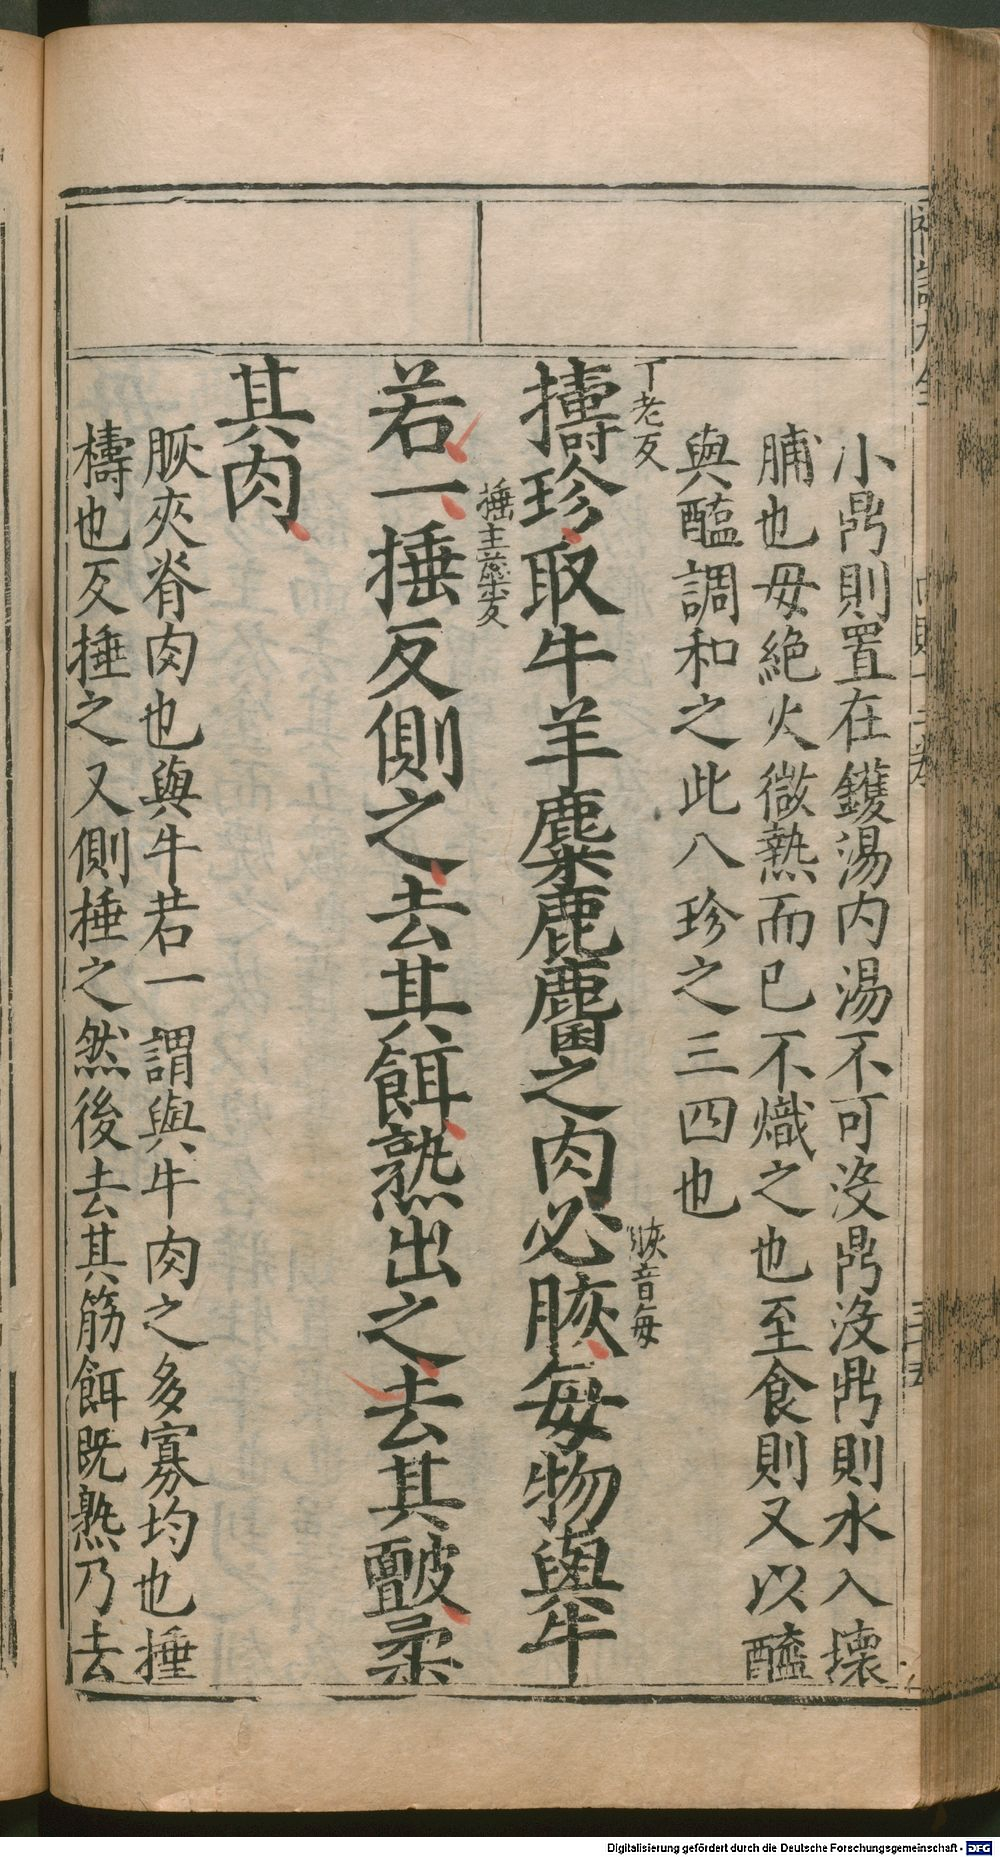 小鼎則置在鑊湯内湯不可沒鼎沒鼎則水入壞
脯也毋絶火微熱而已不熾之也至食則又以醯
與醢調和之此八珍之三四也
丁老反
擣珍取牛羊麋鹿麕之肉必脄每物與牛
脄音每
若一捶反側之去其餌熟出之去其皽柔
捶主蘂反
其肉
脄夾脊肉也與牛若一謂與牛肉之多寡均也捶
擣也反捶之又側捶之然後去其筋餌既熟乃去
Digitalisierung gefördert durch die Deutsche Forschungsgemeinschaft - DFG